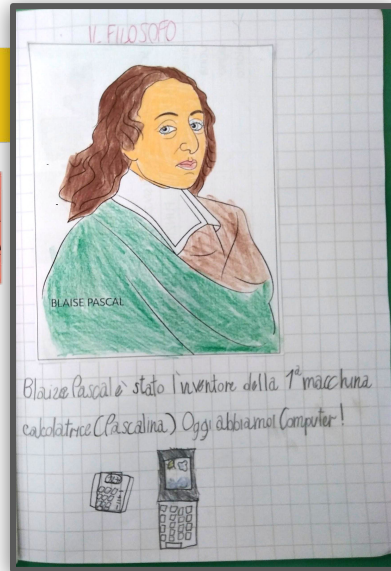 IL FILOSOFO
BLAISE PASCAL
Blaize Pascal e' stato l'inventore della 1ª macchina
cacolatrice (Pascalina) Oggi abbiamo i Computer!